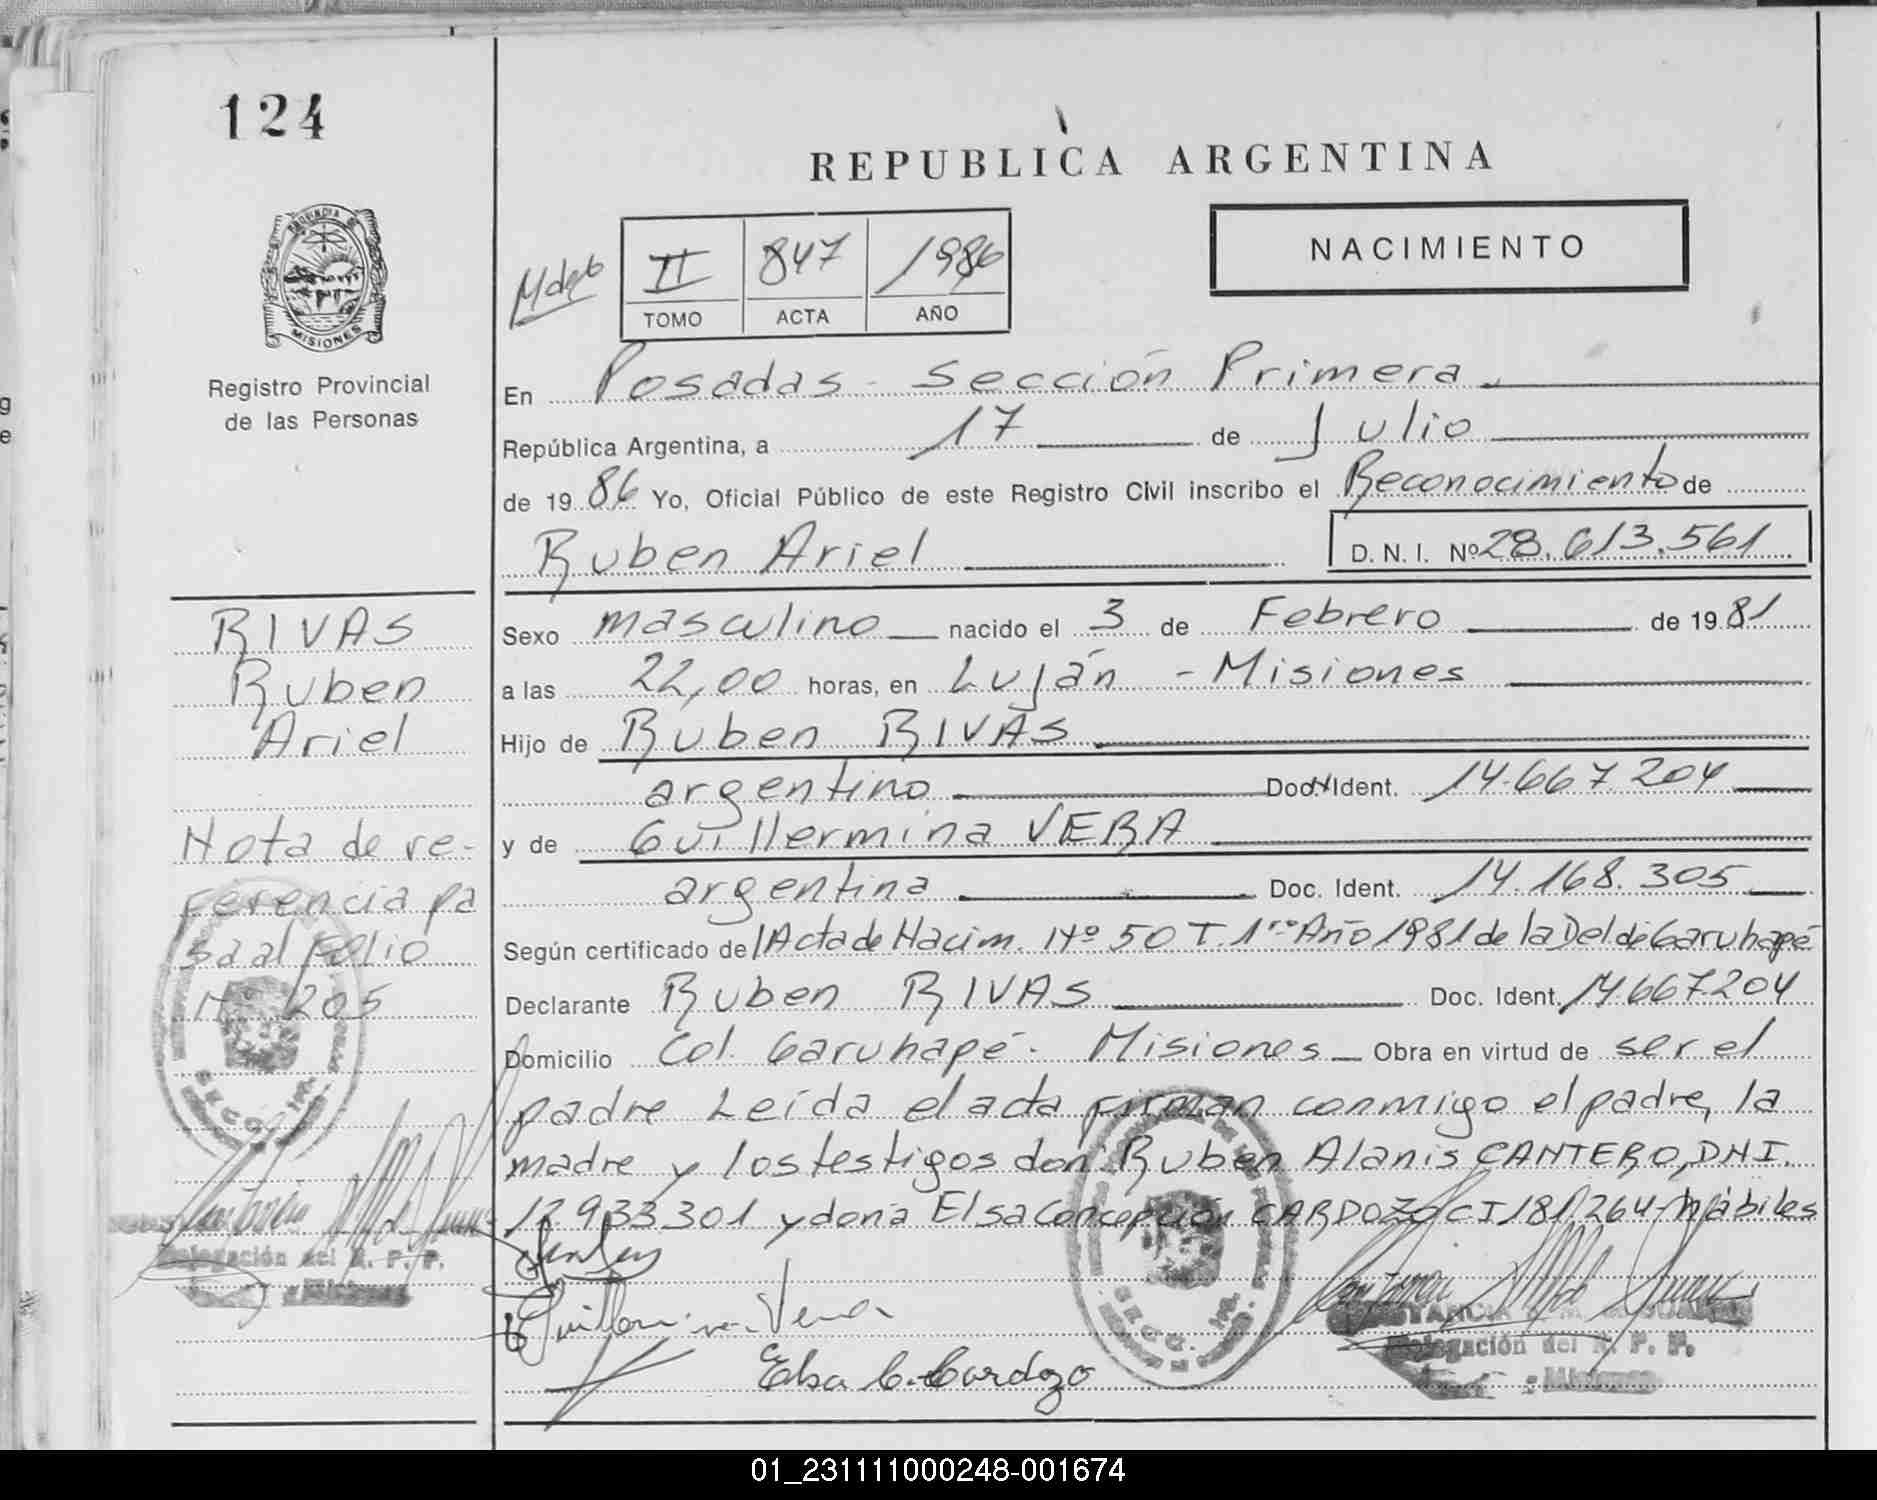 124
REPUBLICA ARGENTINA
PROVINCIA DE
MISIONES
Registro Provincial
de las Personas
II 847 1986
TOMO ACTA AÑO
NACIMIENTO
En Posadas - Sección Primera
República Argentina, a 17 de Julio
de 1986 Yo, Oficial Público de este Registro Civil inscribo el Reconocimiento de
Ruben Ariel D. N. I. Nº 28.613.561
RIVAS
Ruben
Ariel
Nota de re-
ferencia pa
sa al folio
Nº 205
Sexo masculino nacido el 3 de Febrero de 1981
a las 22,00 horas, en Luján - Misiones
Hijo de Ruben RIVAS
argentino Doc. Ident. 14.667.204
y de Guillermina VERA
argentina Doc. Ident. 14.168.305
Según certificado de Acta de Nacim. Nº 50 T. 1ro Año 1981 de la Del de Garuhapé
Declarante Ruben RIVAS Doc. Ident. 14.667.204
Domicilio Col. Garuhapé - Misiones Obra en virtud de ser el
padre Leída el acta firman conmigo el padre, la
madre y los testigos don Ruben Alanis CANTERO, DNI.
12933301 y doña Elsa Concepción CARDOZO CI 181264 - hábiles
Guillermina Vera
Elsa C. Cardozo
Delegación del R. P. P.
Misiones
Delegación del R. P. P.
Misiones
01_231111000248-001674